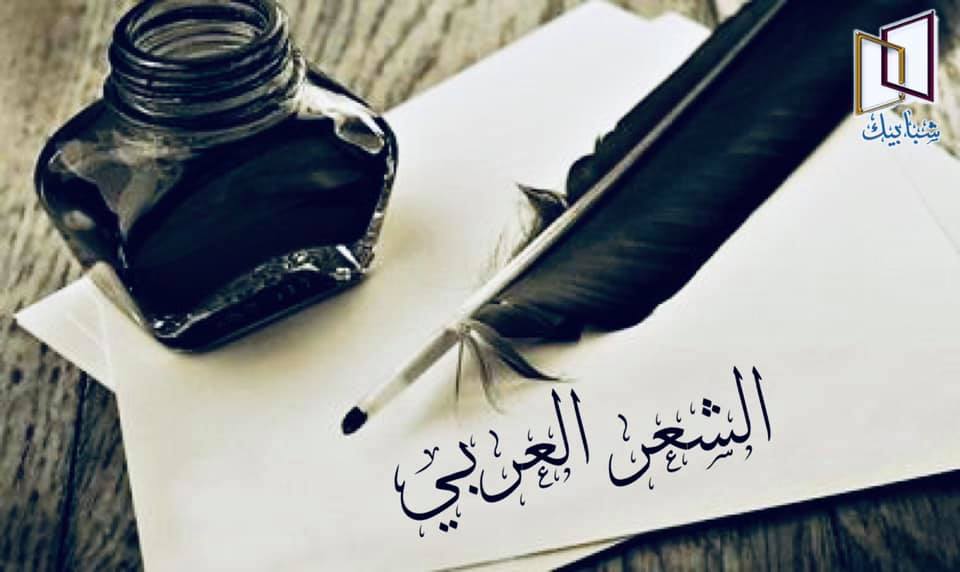 شبابيك
الشعر العربي